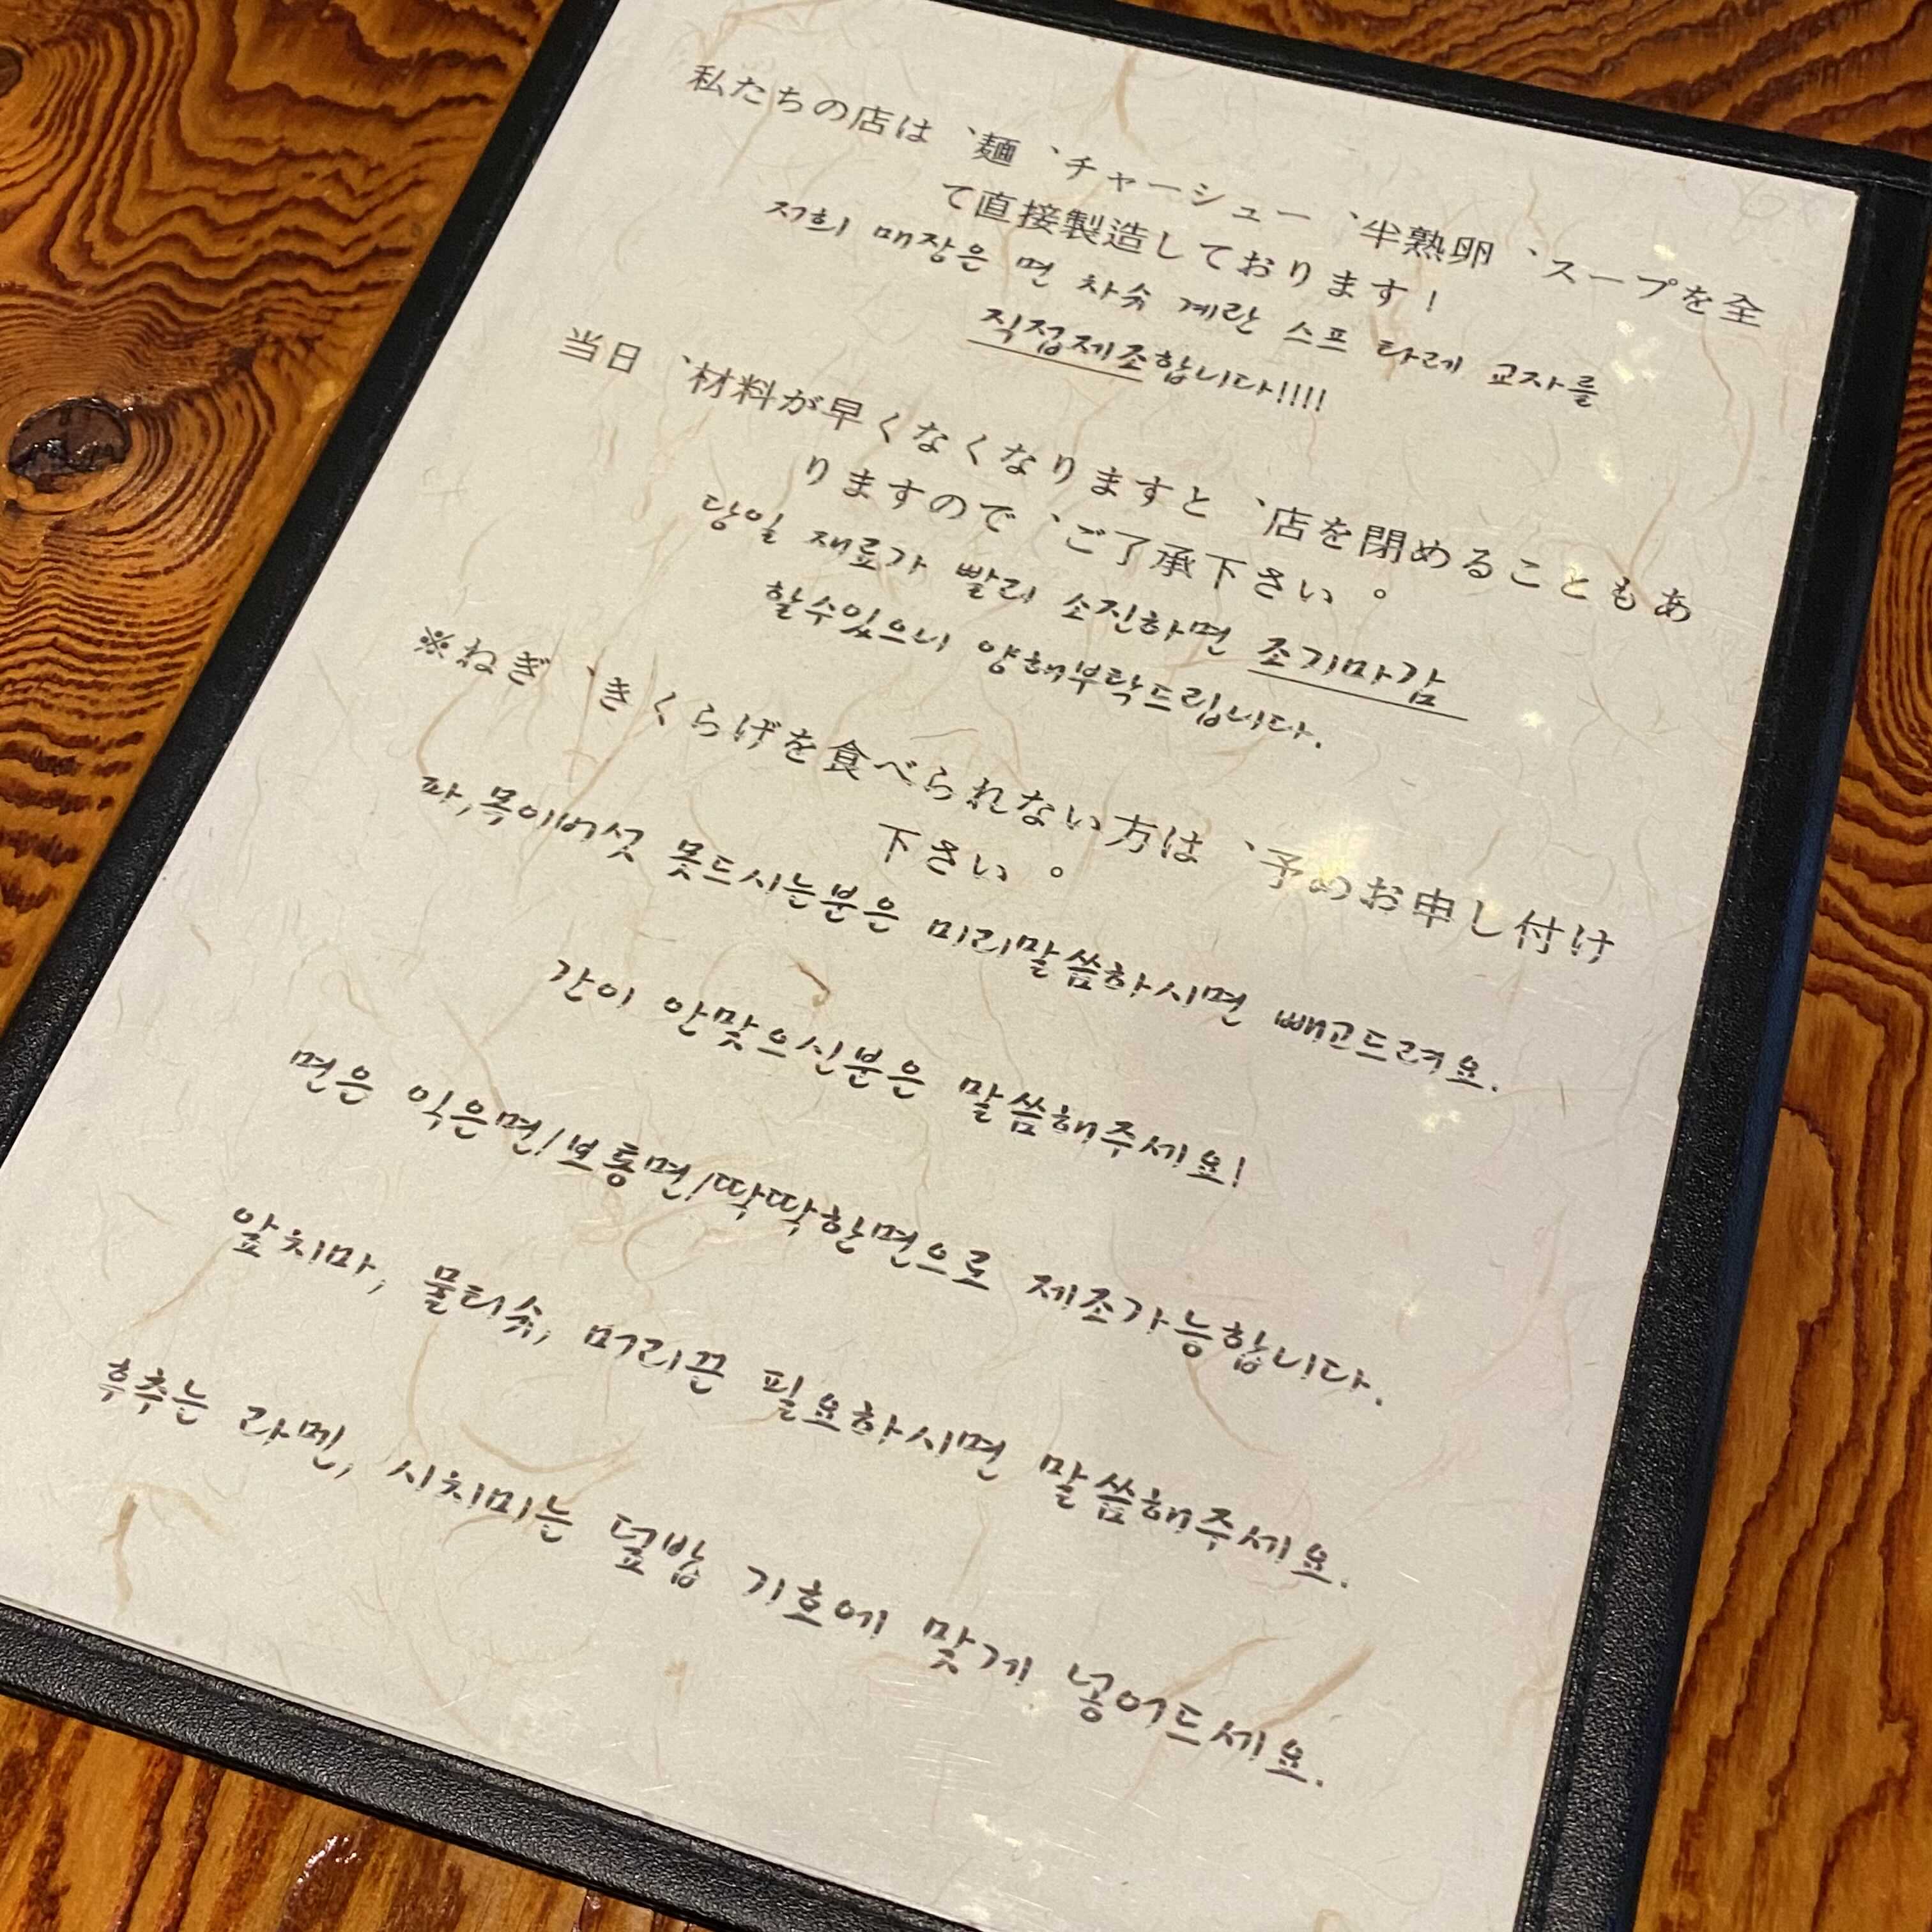 私たちの店は、麺、チャーシュー、半熟卵、スープを全
て直接製造しております!
저희 매장은 면 차슈 계란 스프 타레 교자를
직접제조합니다!!!!
当日、材料が早くなくなりますと、店を閉めることもあ
りますので、ご了承下さい。
당일 재료가 빨리 소진하면 조기마감
할수있으니 양해부탁드립니다.
※ねぎ、きくらげを食べられない方は、予めお申し付け
下さい。
파,목이버섯 못드시는분은 미리말씀하시면 빼고드려요.
간이 안맞으신분은 말씀해주세요!
면은 익은면/보통면/딱딱한면으로 제조가능합니다.
앞치마, 물티슈, 머리끈 필요하시면 말씀해주세요.
후추는 라멘, 시치미는 덮밥 기호에 맞게 넣어드세요.